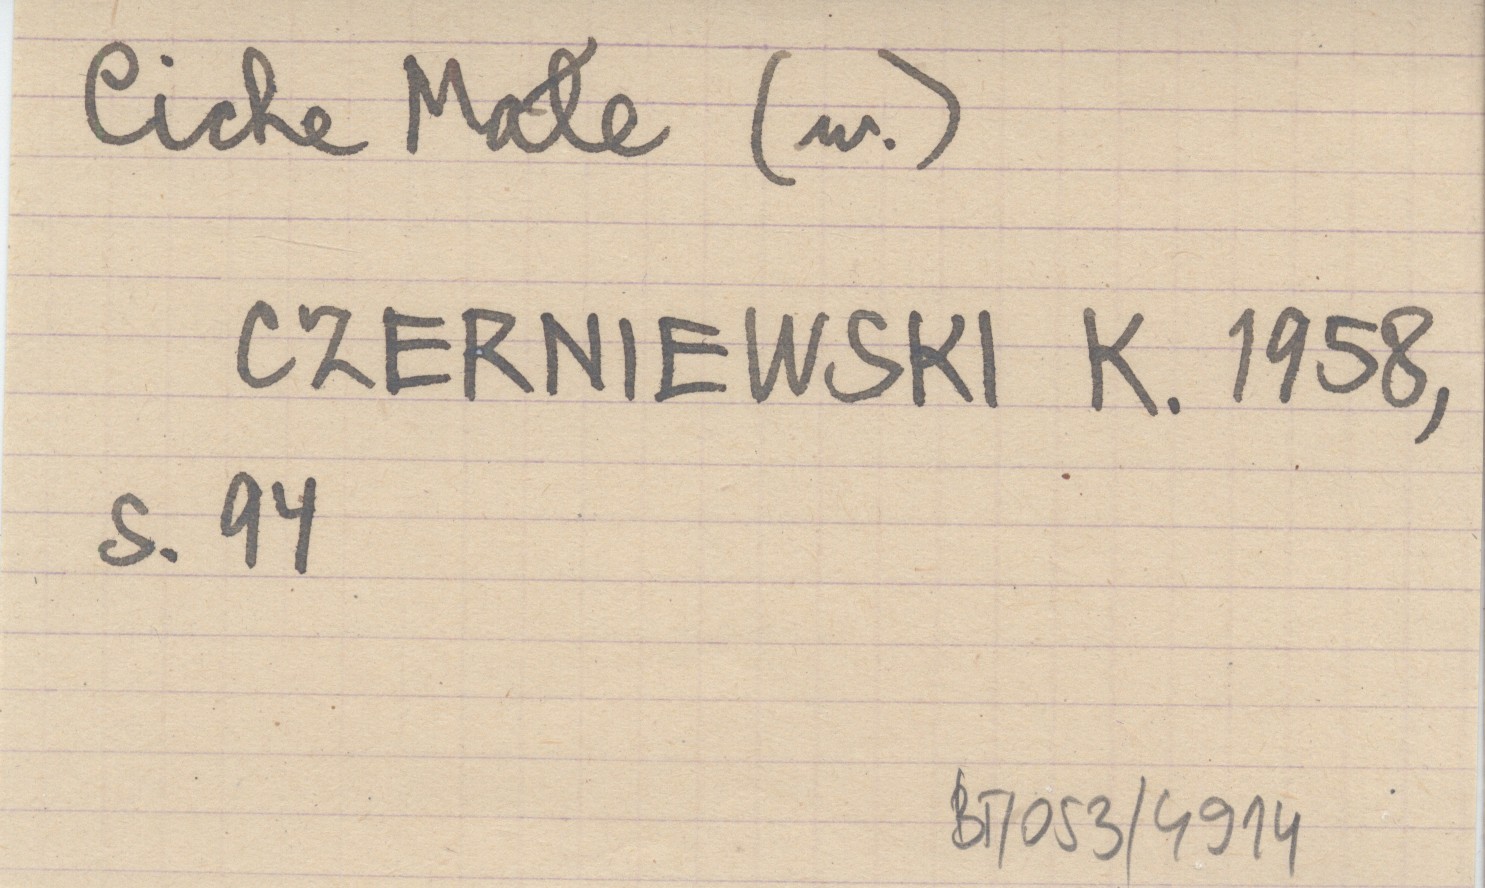 Ciche Małe (w.)
CZERNIEWSKI K. 1958,
s. 94
BT/053/4914